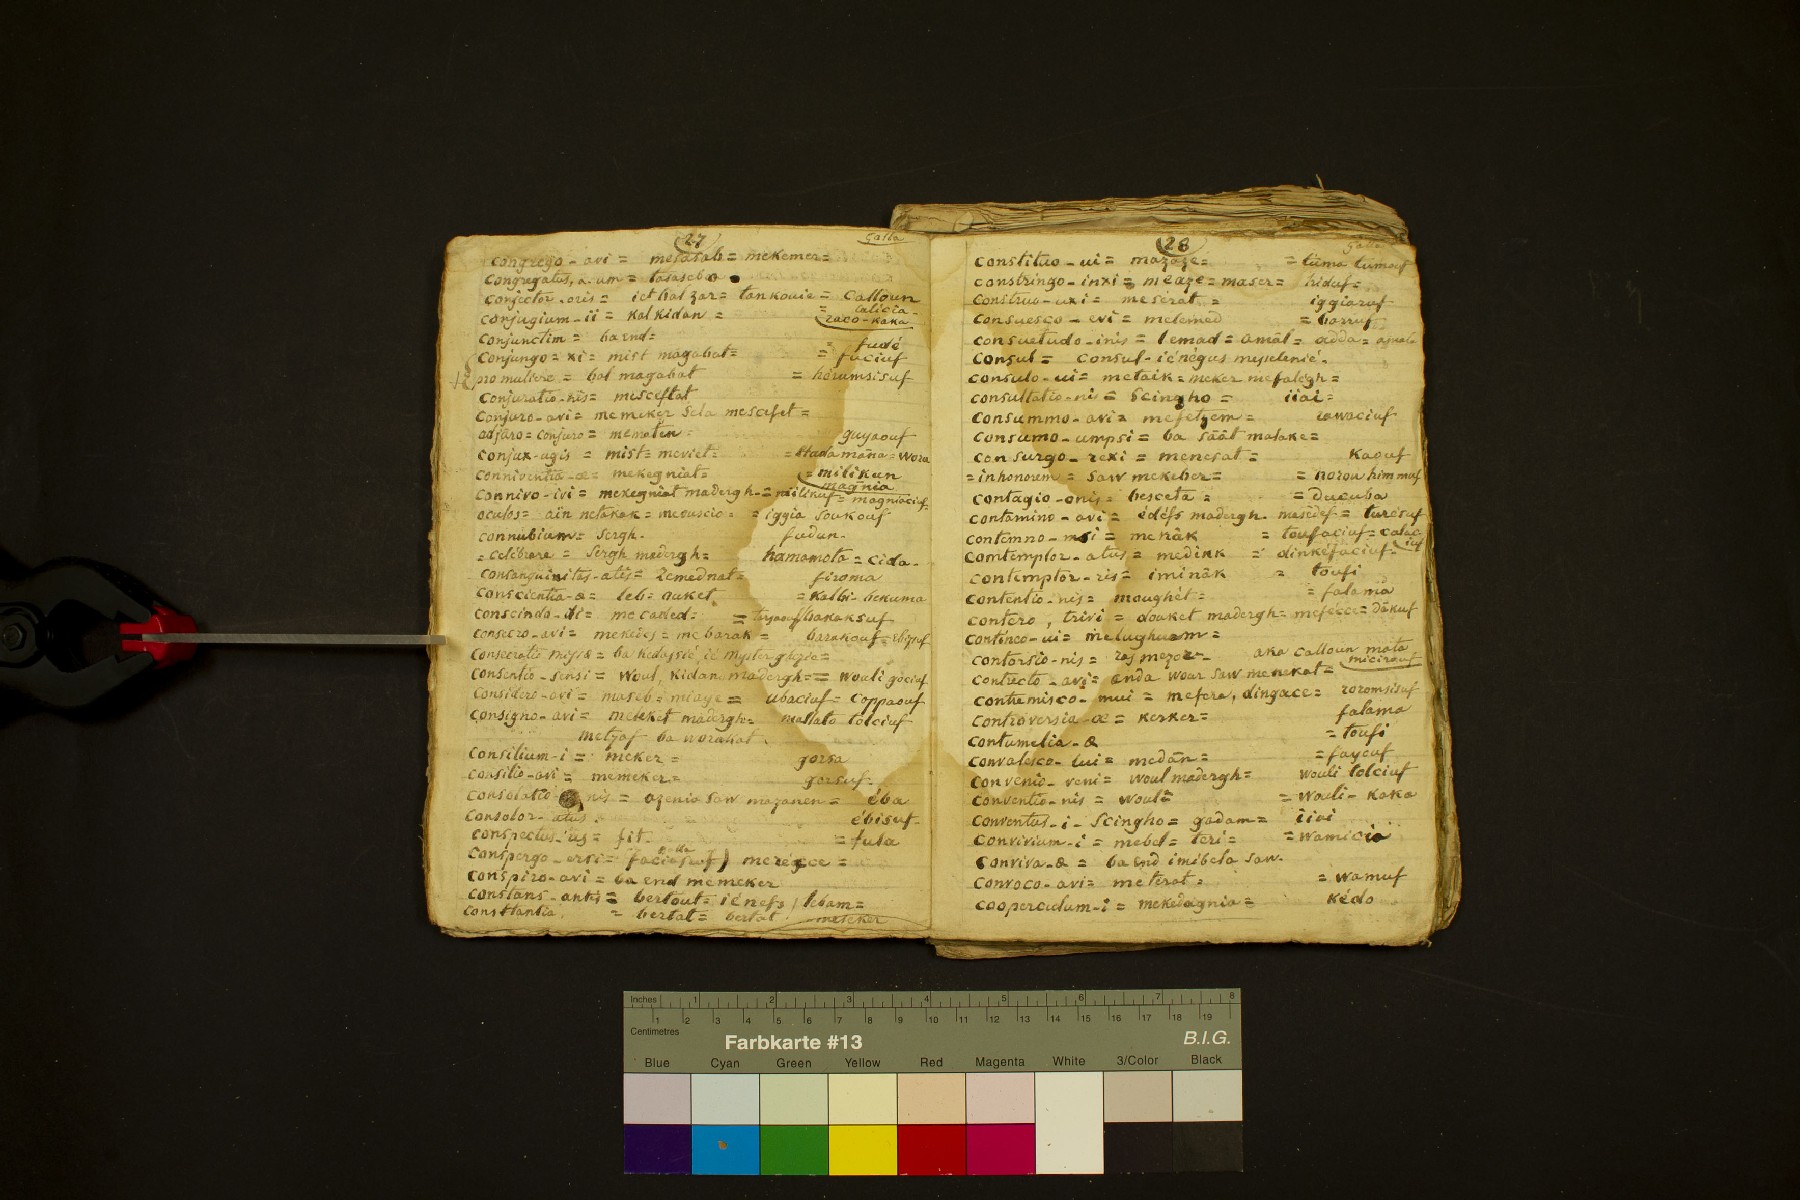 27
Galla
Congrego - avi = metasab = mekemer =
Congregatus, a. um = tasaseba
Conjector - oris = ict bal zar = tankouie = Calloun
Conjugium - ii = Kal Kidan = = calicia -
raco - kaka
Conjunctim = ba end =
= fudé
Conjungo = xi = mist magabat = = fuciuf
pro muliere = bal magabat = hérumsisuf
Conjuratio - nis = misceftat
Conjuro - avi = memeker Sela mescefet =
adjuro = conjuro = mematen =
guyaouf
Conjux - ugis = mist = meviet = = Hada māna = wora
Conniventia - æ = mekegniat = = milikun
magnia
Connivo - ivi = mekegniat madergh = = milikuf = magniaciuf =
oculos = aïn netakak = meouscio = = iggia soukouf
Connubium = Sergh - fudun -
= celebrare = Sergh madergh = hamamota = cida -
Consanguinitas - atis = Zemednat = firoma
Conscientia - æ = leb = auket = Kalbi - bekuma
Conscindo - idi = mecaded = = tuyaouf/bakaksuf
Consecro - avi = mekedes = mebarak = barakouf = ebizzuf
Consecratio missæ = ba kedassié, ié myster gezie =
Consentio - sensi = Woul, Kidan madergh = = wouli góciuf
Considero - avi = maseb = miaye = ubaciuf = Coppaouf
Consigno - avi = meleket madergh = mallato tolciuf
metzaf ba worakat
Consilium - i = meker = gorsa
Consilio - avi = memeker = gorsuf -
Consolatio nis = azenia saw mazanen = éba
Consolor - atus . ébisuf -
Conspectus - us = fit . = fula
Conspergo - ersi = faciasuf) meregce =
Conspiro - avi = ba end memeker
Constans - antis = bertout = ié nefs / lebam =
Constantia . = bertat = bertat meseker
28
Galla
Constituo - ui = mazaze = = tuma tumouf
Constringo - inxi = meaze = maser = hiduf =
Construo - uxi = meserat = iggiaruf
Consuesco - evi = melemed = barruf =
Consuetudo - inis = lemad = amāl = adda = amala
Consul = consul - ié négus mysselenié .
Consulo - ui = metaik = meker mefalegh =
Consultatio - nis = Scingho = iiai =
Consummo - avi = mefetzem = wawaciuf
Consumo - umpsi = ba sāāt malake =
Consurgo - rexi = menesat = Kaouf
= in honorem = saw mekeber = = norou himmuf
Contagio - onis = besceta = = Ducuba
Contamino - avi = édéfs madergh . mesédef = turésuf
Contemno - msi = menāk = toufaciuf = calaciuf
Comtemplor - atus = medink = dinkéfaciuf -
Contemptor - ris = imināk = toufi
Contentio - nis = moughét = = falama
Contero, trivi = douket madergh = mefecce = dākuf
Contineo - ui = melughuem =
Contorsio - nis = ras mezor = aka Calloun mata
micirouf
Contrecto - avi = anda woar saw menekat =
Contremisco - mui = mefera, dingace = roromsisuf
Controversia - æ = Kerker = falama
Contumelia - æ = toufi
Convalesco - lui = medān = = fayouf
Convenio - veni = woul madergh = wouli tolciuf
Conventio - nis = woul = = wouli - kaka
Conventus - i - Scingho = gadam = iivi
Convivium - i = mebel = teri = = wamicia
Conviva - æ = ba end imibela saw .
Convoco - avi = meterat = = wamuf
Cooperculum - i = mekedagnia = Kédo
Inches 1 2 3 4 5 6 7 8
1 2 3 4 5 6 7 8 9 10 11 12 13 14 15 16 17 18 19
Centimetres
Farbkarte #13
B.I.G.
Blue Cyan Green Yellow Red Magenta White 3/Color Black